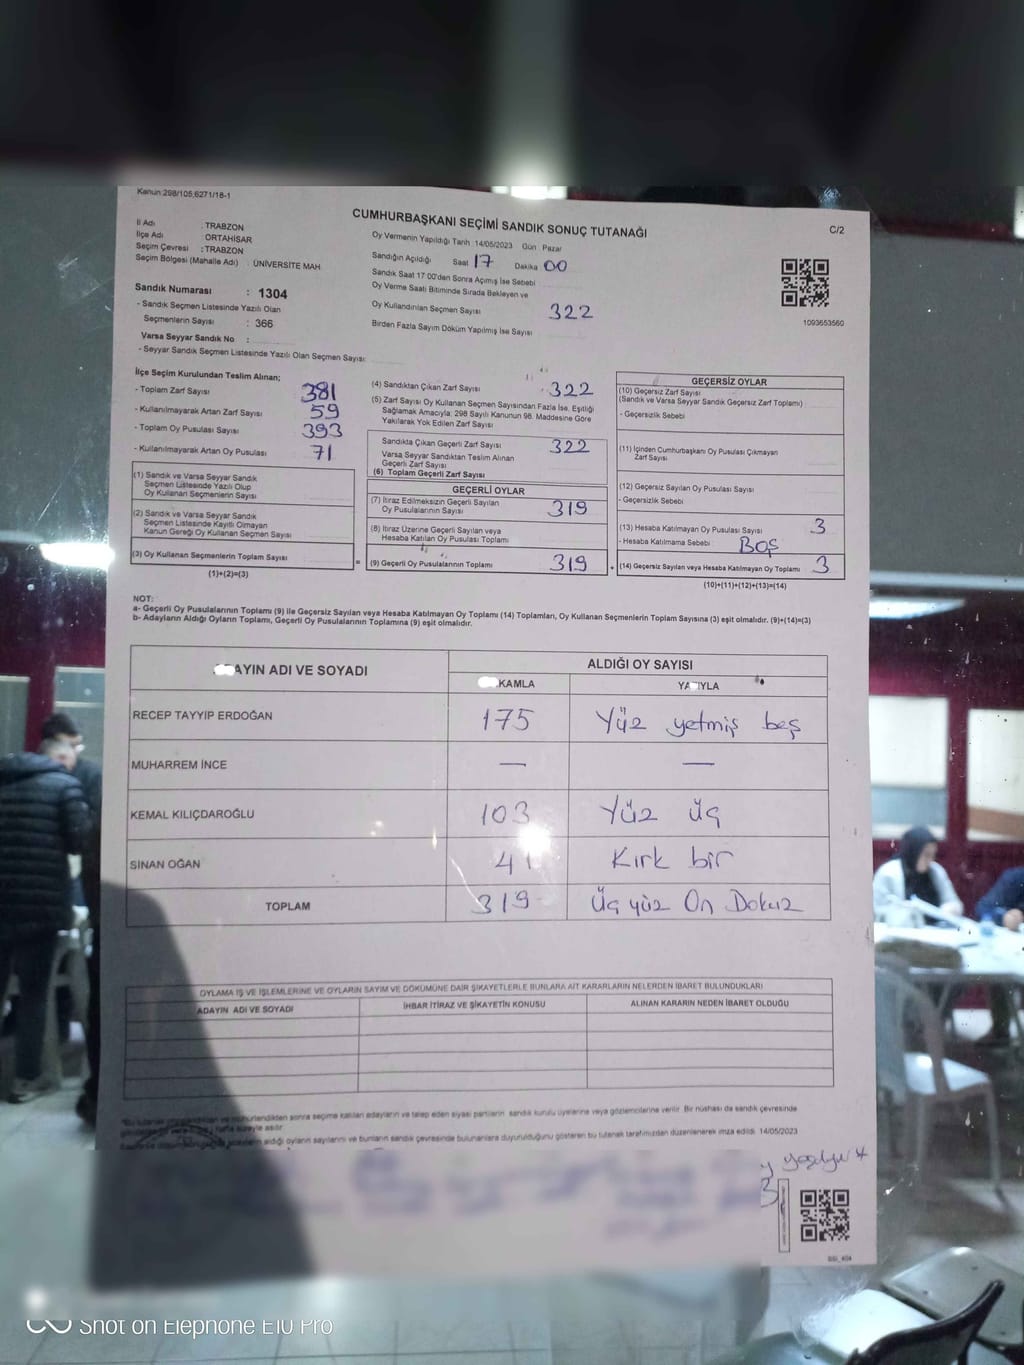 Kanun:298/105;6271/18-1
CUMHURBAŞKANI SEÇİMİ SANDIK SONUÇ TUTANAĞI
C/2
İl Adı : TRABZON
İlçe Adı : ORTAHİSAR
Seçim Çevresi : TRABZON
Seçim Bölgesi (Mahalle Adı) : ÜNİVERSİTE MAH
Oy Vermenin Yapıldığı Tarih :14/05/2023 Gün Pazar
Sandığın Açıldığı Saat 17 Dakika 00
Sandık Saat 17:00'den Sonra Açımış İse Sebebi
Oy Verme Saati Bitiminde Sırada Bekleyen ve
Oy Kullandırılan Seçmen Sayısı 322
Birden Fazla Sayım Döküm Yapılmış İse Sayısı
1093653560
Sandık Numarası : 1304
- Sandık Seçmen Listesinde Yazılı Olan
Seçmenlerin Sayısı : 366
Varsa Seyyar Sandık No :
- Seyyar Sandık Seçmen Listesinde Yazılı Olan Seçmen Sayısı:
İlçe Seçim Kurulundan Teslim Alınan;
- Toplam Zarf Sayısı 381
- Kullanılmayarak Artan Zarf Sayısı 59
- Toplam Oy Pusulası Sayısı 393
- Kullanılmayarak Artan Oy Pusulası 71
(1) Sandık ve Varsa Seyyar Sandık
Seçmen Listesinde Yazılı Olup
Oy Kullanan Seçmenlerin Sayısı
(2) Sandık ve Varsa Seyyar Sandık
Seçmen Listesinde Kayıtlı Olmayan
Kanun Gereği Oy Kullanan Seçmen Sayısı
(3) Oy Kullanan Seçmenlerin Toplam Sayısı
(1)+(2)=(3)
(4) Sandıktan Çıkan Zarf Sayısı 322
(5) Zarf Sayısı Oy Kullanan Seçmen Sayısından Fazla İse, Eşitliği
Sağlamak Amacıyla; 298 Sayılı Kanunun 98. Maddesine Göre
Yakılarak Yok Edilen Zarf Sayısı
Sandıkta Çıkan Geçerli Zarf Sayısı 322
Varsa Seyyar Sandıktan Teslim Alınan
Geçerli Zarf Sayısı
(6) Toplam Geçerli Zarf Sayısı
GEÇERLİ OYLAR
(7) İtiraz Edilmeksizin Geçerli Sayılan
Oy Pusulalarının Sayısı 319
(8) İtiraz Üzerine Geçerli Sayılan veya
Hesaba Katılan Oy Pusulası Toplamı
= (9) Geçerli Oy Pusulalarının Toplamı 319 +
GEÇERSİZ OYLAR
(10) Geçersiz Zarf Sayısı
(Sandık ve Varsa Seyyar Sandık Geçersiz Zarf Toplamı)
- Geçersizlik Sebebi
(11) İçinden Cumhurbaşkanı Oy Pusulası Çıkmayan
Zarf Sayısı
(12) Geçersiz Sayılan Oy Pusulası Sayısı
- Geçersizlik Sebebi
(13) Hesaba Katılmayan Oy Pusulası Sayısı 3
- Hesaba Katılmama Sebebi BOŞ
(14) Geçersiz Sayılan veya Hesaba Katılmayan Oy Toplamı 3
(10)+(11)+(12)+(13)=(14)
NOT:
a- Geçerli Oy Pusulalarının Toplamı (9) ile Geçersiz Sayılan veya Hesaba Katılmayan Oy Toplamı (14) Toplamları, Oy Kullanan Seçmenlerin Toplam Sayısına (3) eşit olmalıdır. (9)+(14)=(3)
b- Adayların Aldığı Oyların Toplamı, Geçerli Oy Pusulalarının Toplamına (9) eşit olmalıdır.
AYIN ADI VE SOYADI
ALDIĞI OY SAYISI
KAMLA YAZIYLA
RECEP TAYYİP ERDOĞAN 175 Yüz yetmiş beş
MUHARREM İNCE — —
KEMAL KILIÇDAROĞLU 103 Yüz üç
SİNAN OĞAN 41 Kırk bir
TOPLAM 319 Üç yüz On Dokuz
OYLAMA İŞ VE İŞLEMLERİNE VE OYLARIN SAYIM VE DÖKÜMÜNE DAİR ŞİKAYETLERLE BUNLARA AİT KARARLARIN NELERDEN İBARET BULUNDUKLARI
ADAYIN ADI VE SOYADI İHBAR İTİRAZ VE ŞİKAYETİN KONUSU ALINAN KARARIN NEDEN İBARET OLDUĞU
sonra seçime katılan adayların ve talep eden siyasi partilerin sandık kurulu üyelerine veya gözlemcilerine verilir. Bir nüshası da sandık çevresinde
asılır.
aldığı oyların sayılarını ve bunların sandık çevresinde bulunanlara duyurulduğunu gösteren bu tutanak tarafımızdan düzenlenerek imza edildi. 14/05/2023
Shot on Elephone E10 Pro